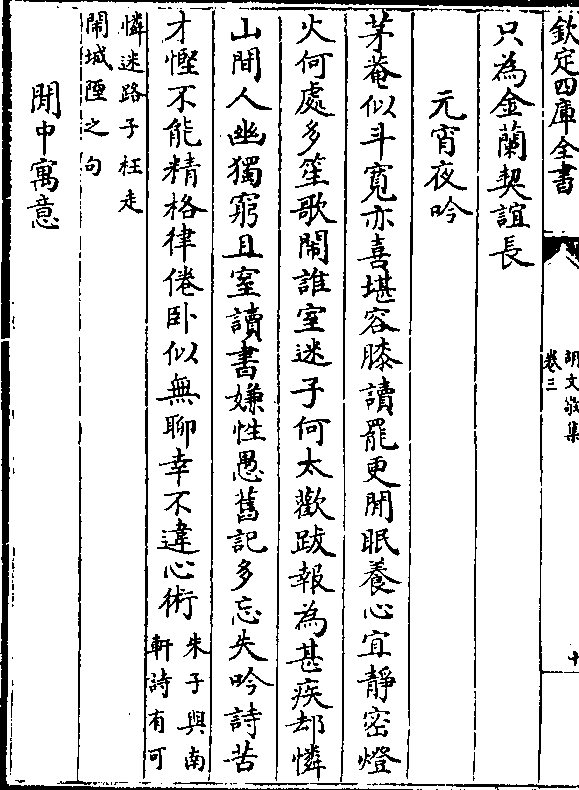 欽定四庫全書
胡文敬集
卷三
十
只為金蘭契誼長
元宵夜吟
茅菴似斗寛亦喜堪容膝讀罷更閒眠養心宜靜密燈
火何處多笙歌鬧誰室迷子何太歡跋報為甚疾却憐
山間人幽獨窮且窒讀書嫌性愚舊記多忘失吟詩苦
才慳不能精格律倦卧似無聊幸不違心術朱子與南
軒詩有可
憐迷路子枉走
鬧城堙之句
閒中寓意